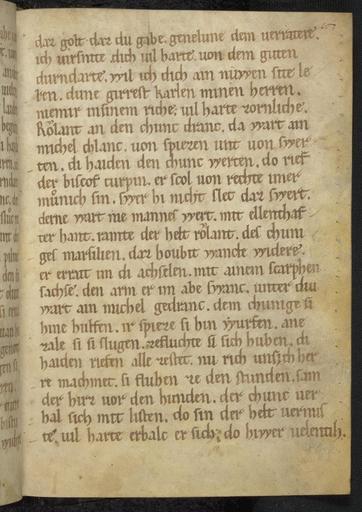 daz golt daz du gabe. genelune dem uerratere.
ich uirsnite dich uil harte. uon dem guten
durndarte. wil ich dich ain niwen site le
ren. dune girrest karlen minen herren.
niemir insinem riche. uil harte zornliche.
Rŏlant an den chunc dranc. da wart ain
michel chlanc. uon spiezen unt von swer
ten. di haiden den chunc werten. do rief
der biscof turpin. er scol von rechte imer
munich sin. swer hi nicht slet daz swert.
derne wart nie mannes wert. mit ellenthaf
ter hant. ramte der helt rŏlant. des chuni
ges marsilien. daz houbit wancte widere.
er errait im di achselen. mit ainem scarphen
sachse. den arm er im abe swanc. unter diu
wart ain michel gedranc. dem chunige si
hine hulfen. ir spieze si hin wurfen. ane
zale si si slugen. zefluchte si sich huben. di
haiden riefen alle zestet. nu rich unsich her
re machmet. si fluhen ze den stunden. sam
der hirz uor den hunden. der chunc uer
hal sich mit listen. do sin der helt uermis
te. uil harte erbalc er sich. do hiwer uelentih.